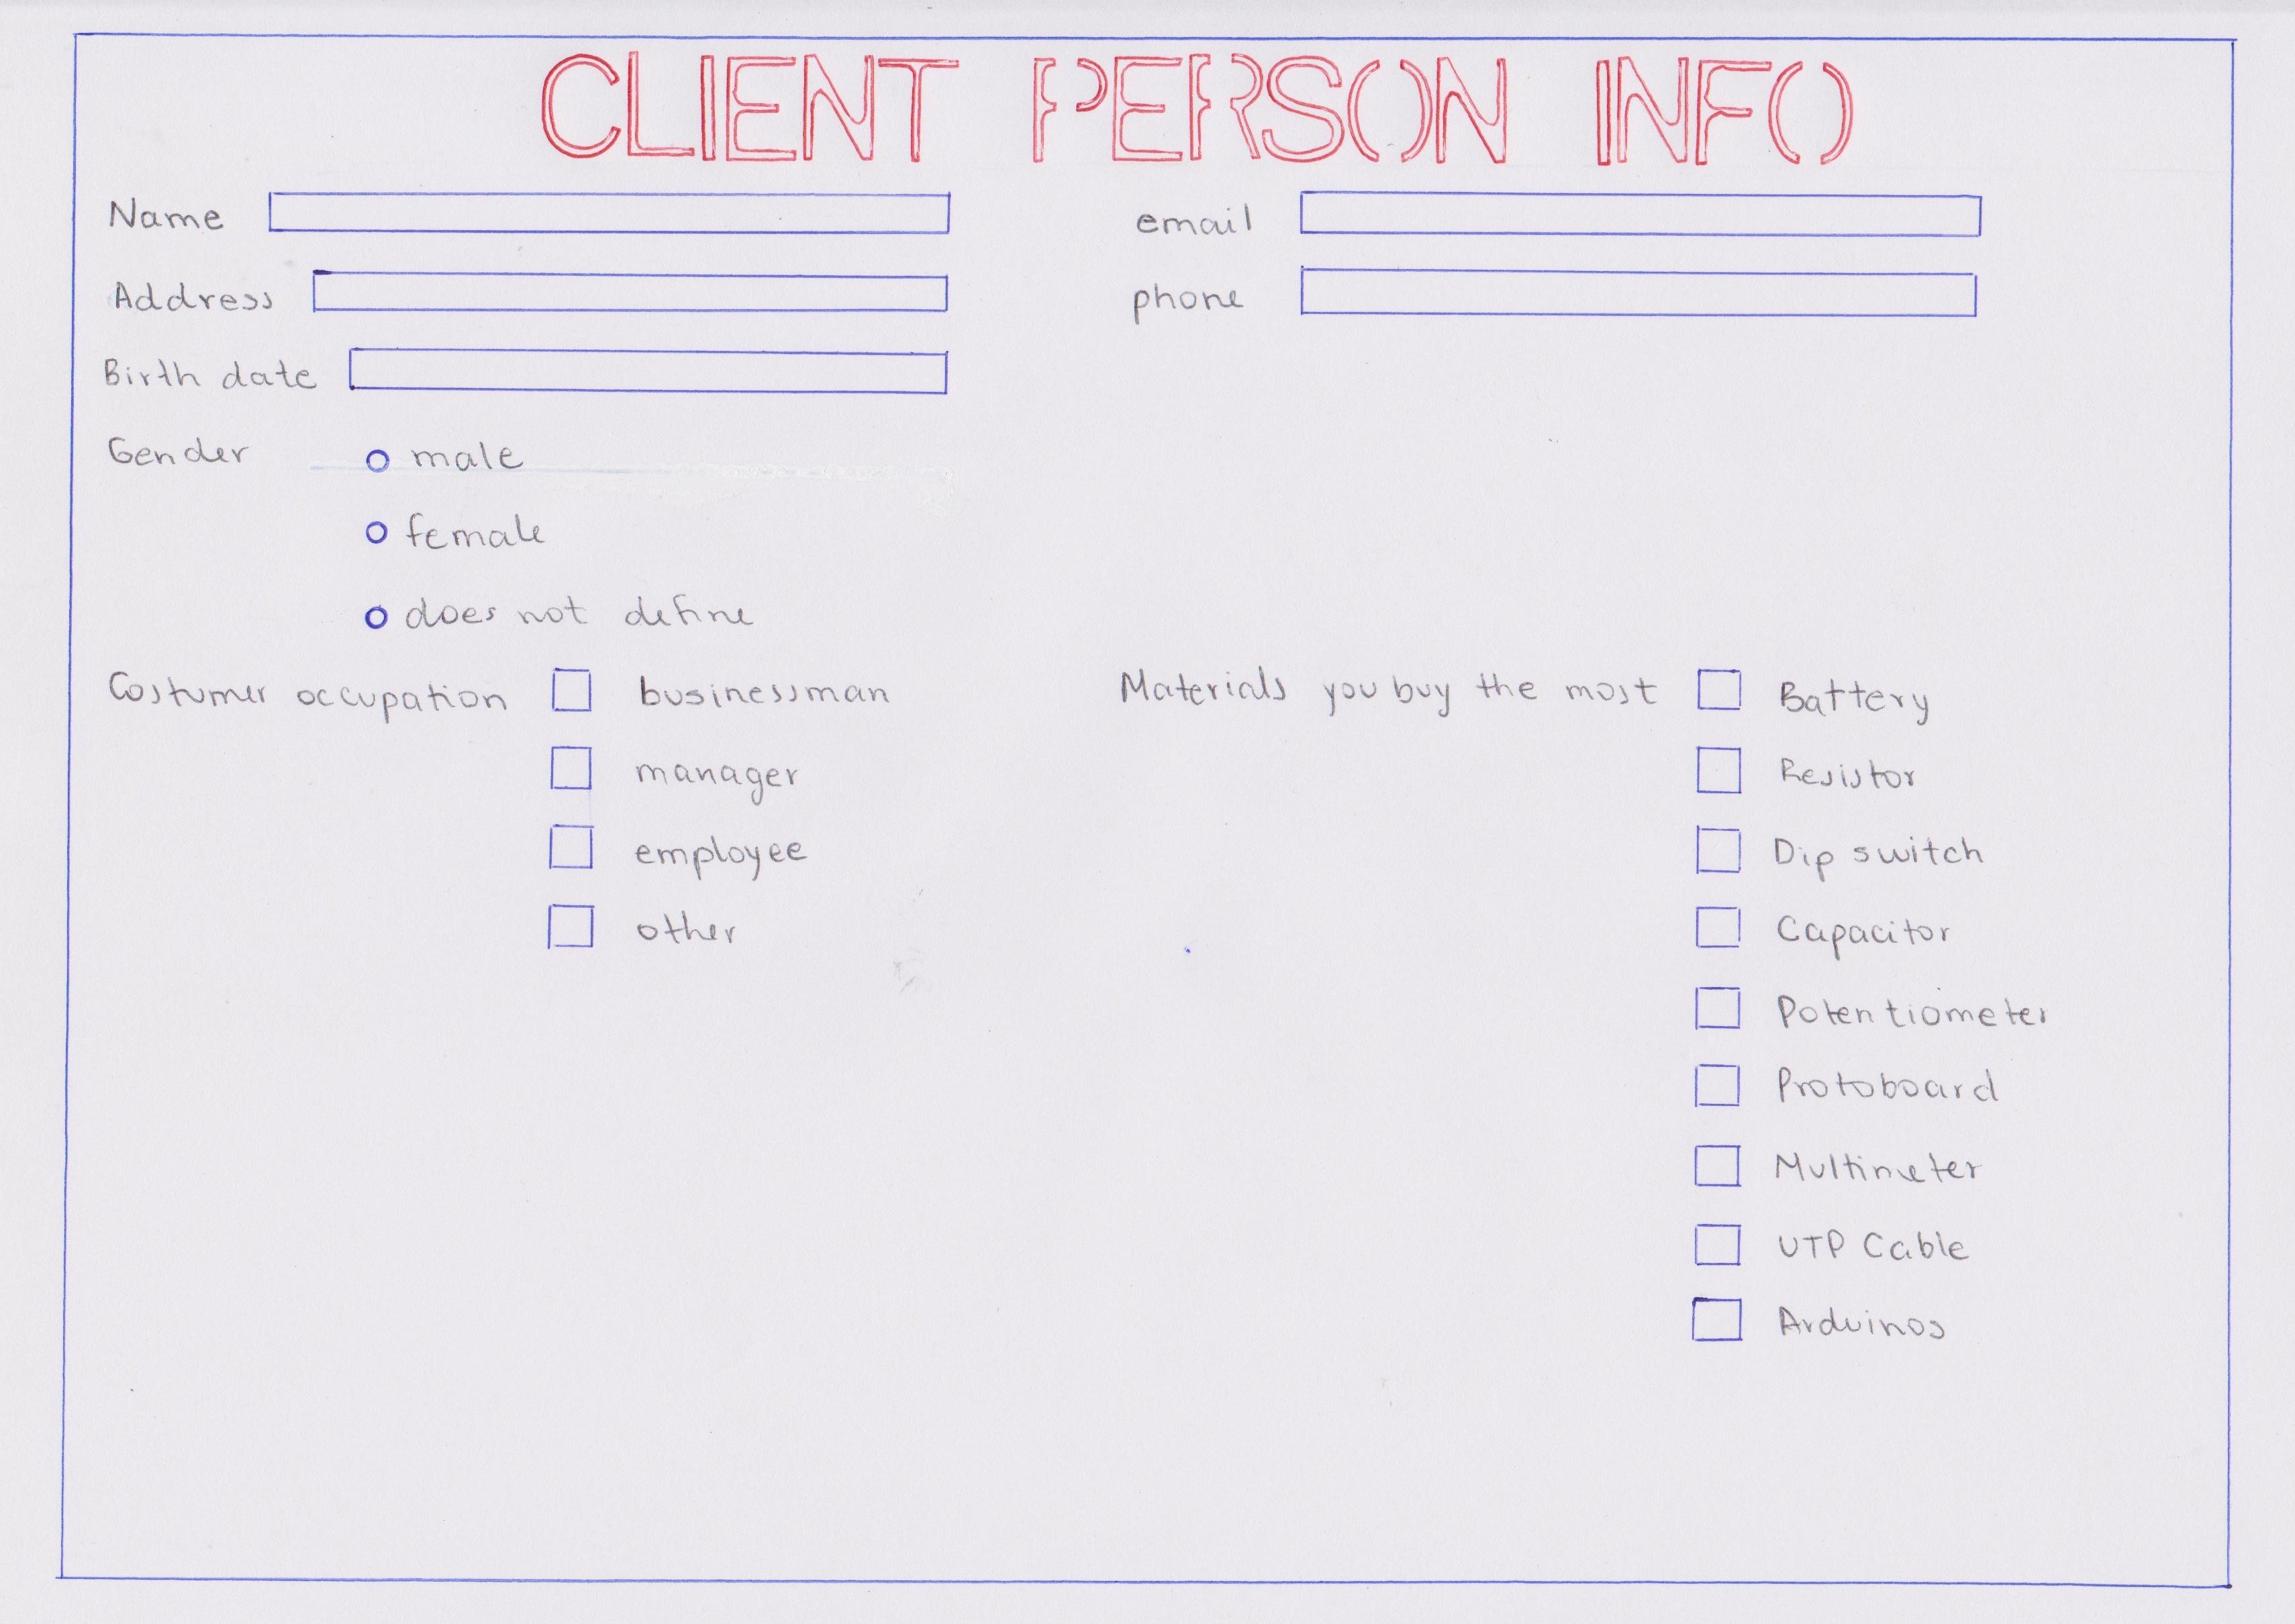 CLIENT PERSON INFO
Name
email
Address
phone
Birth date
Gender
male
female
does not define
Costumer occupation
businessman
manager
employee
other
Materials you buy the most
Battery
Resistor
Dip switch
Capacitor
Potentiometer
Protoboard
Multimeter
UTP Cable
Arduinos